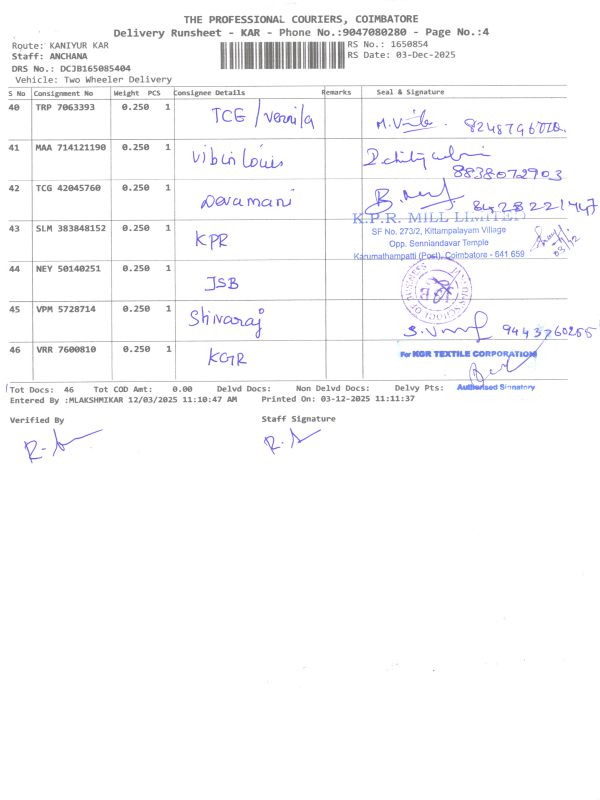 THE PROFESSIONAL COURIERS, COIMBATORE
Delivery Runsheet - KAR - Phone No.:9047080280 - Page No.:4
Route: KANIYUR KAR RS No.: 1650854
Staff: ANCHANA RS Date: 03-Dec-2025
DRS No.: DCJB165085404
Vehicle: Two Wheeler Delivery
S No Consignment No Weight PCS Consignee Details Remarks Seal & Signature
40 TRP 7063393 0.250 1 TCE /
41 MAA 714121190 0.250 1 Vibin Louis
8838072903
42 TCG 42045760 0.250 1 Devamani
K.P.R. MILL LIMITED
43 SLM 383848152 0.250 1 KPR SF No. 273/2, Kittampalayam Village
Opp. Senniandavar Temple
Karumathampatti (Post), Coimbatore - 641 659
03/12
44 NEY 50140251 0.250 1 JSB
45 VPM 5728714 0.250 1 Shivaraj 9443760255
46 VRR 7600810 0.250 1 KGR For KGR TEXTILE CORPORATION
Authorised Signatory
Tot Docs: 46 Tot COD Amt: 0.00 Delvd Docs: Non Delvd Docs: Delvy Pts:
Entered By :MLAKSHMIKAR 12/03/2025 11:10:47 AM Printed On: 03-12-2025 11:11:37
Verified By Staff Signature